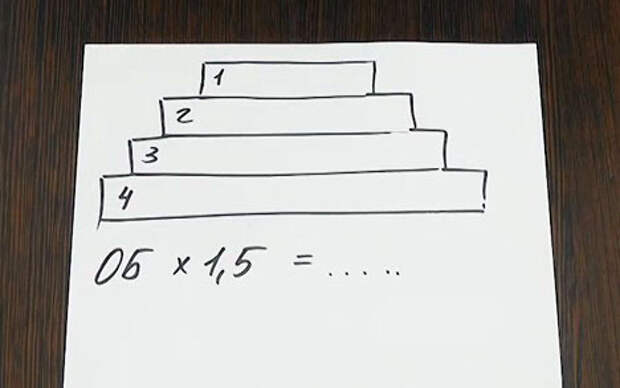 1
2
3
4
ОБ × 1,5 = .....